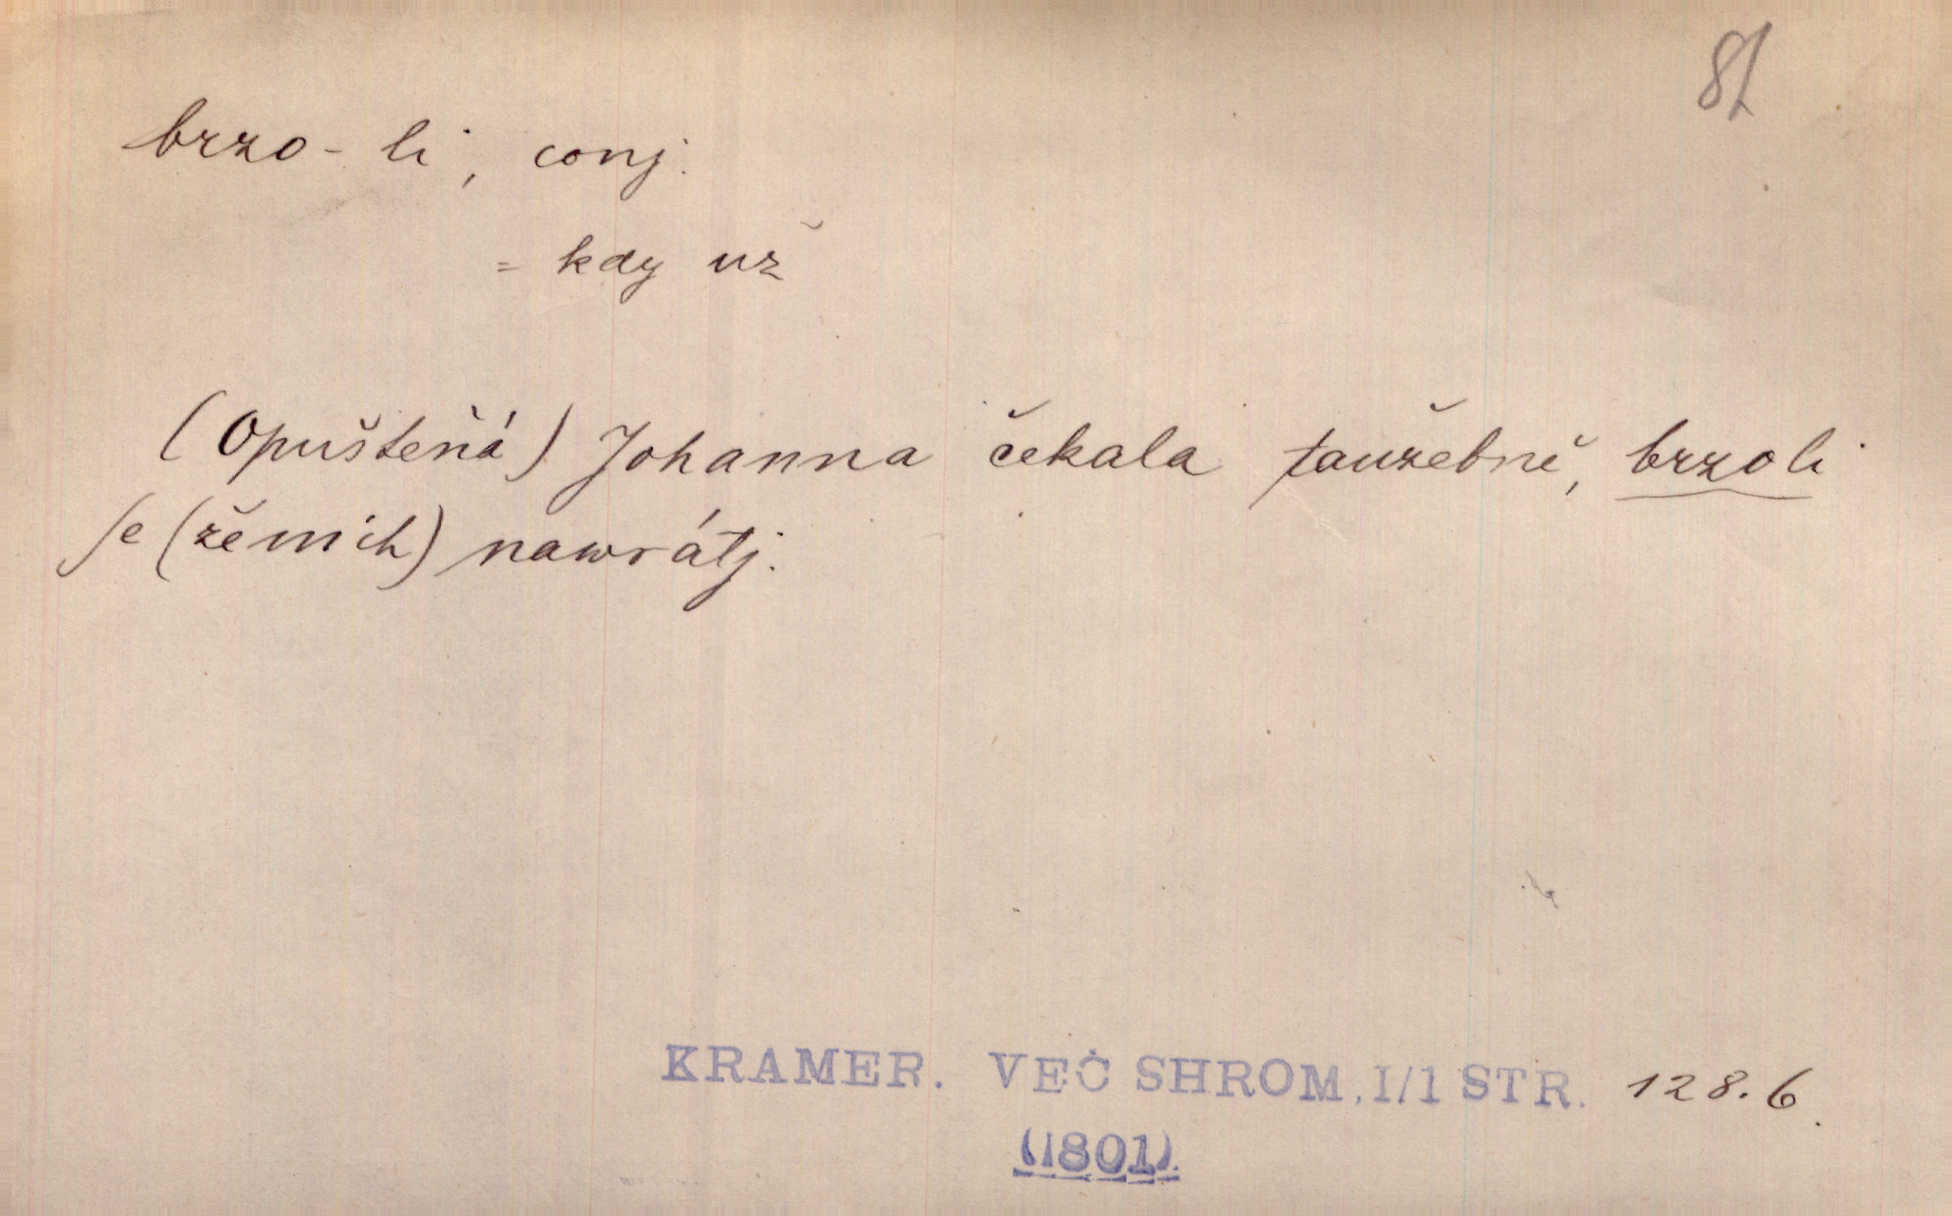 81
brzo-li, conj.
= kdy už
(Opuštěná) Johanna čekala taužebně, brzoli
se (ženich) nawrátj.
KRAMER. VEČ SHROM, I/1 STR. 128.6.
(1801).